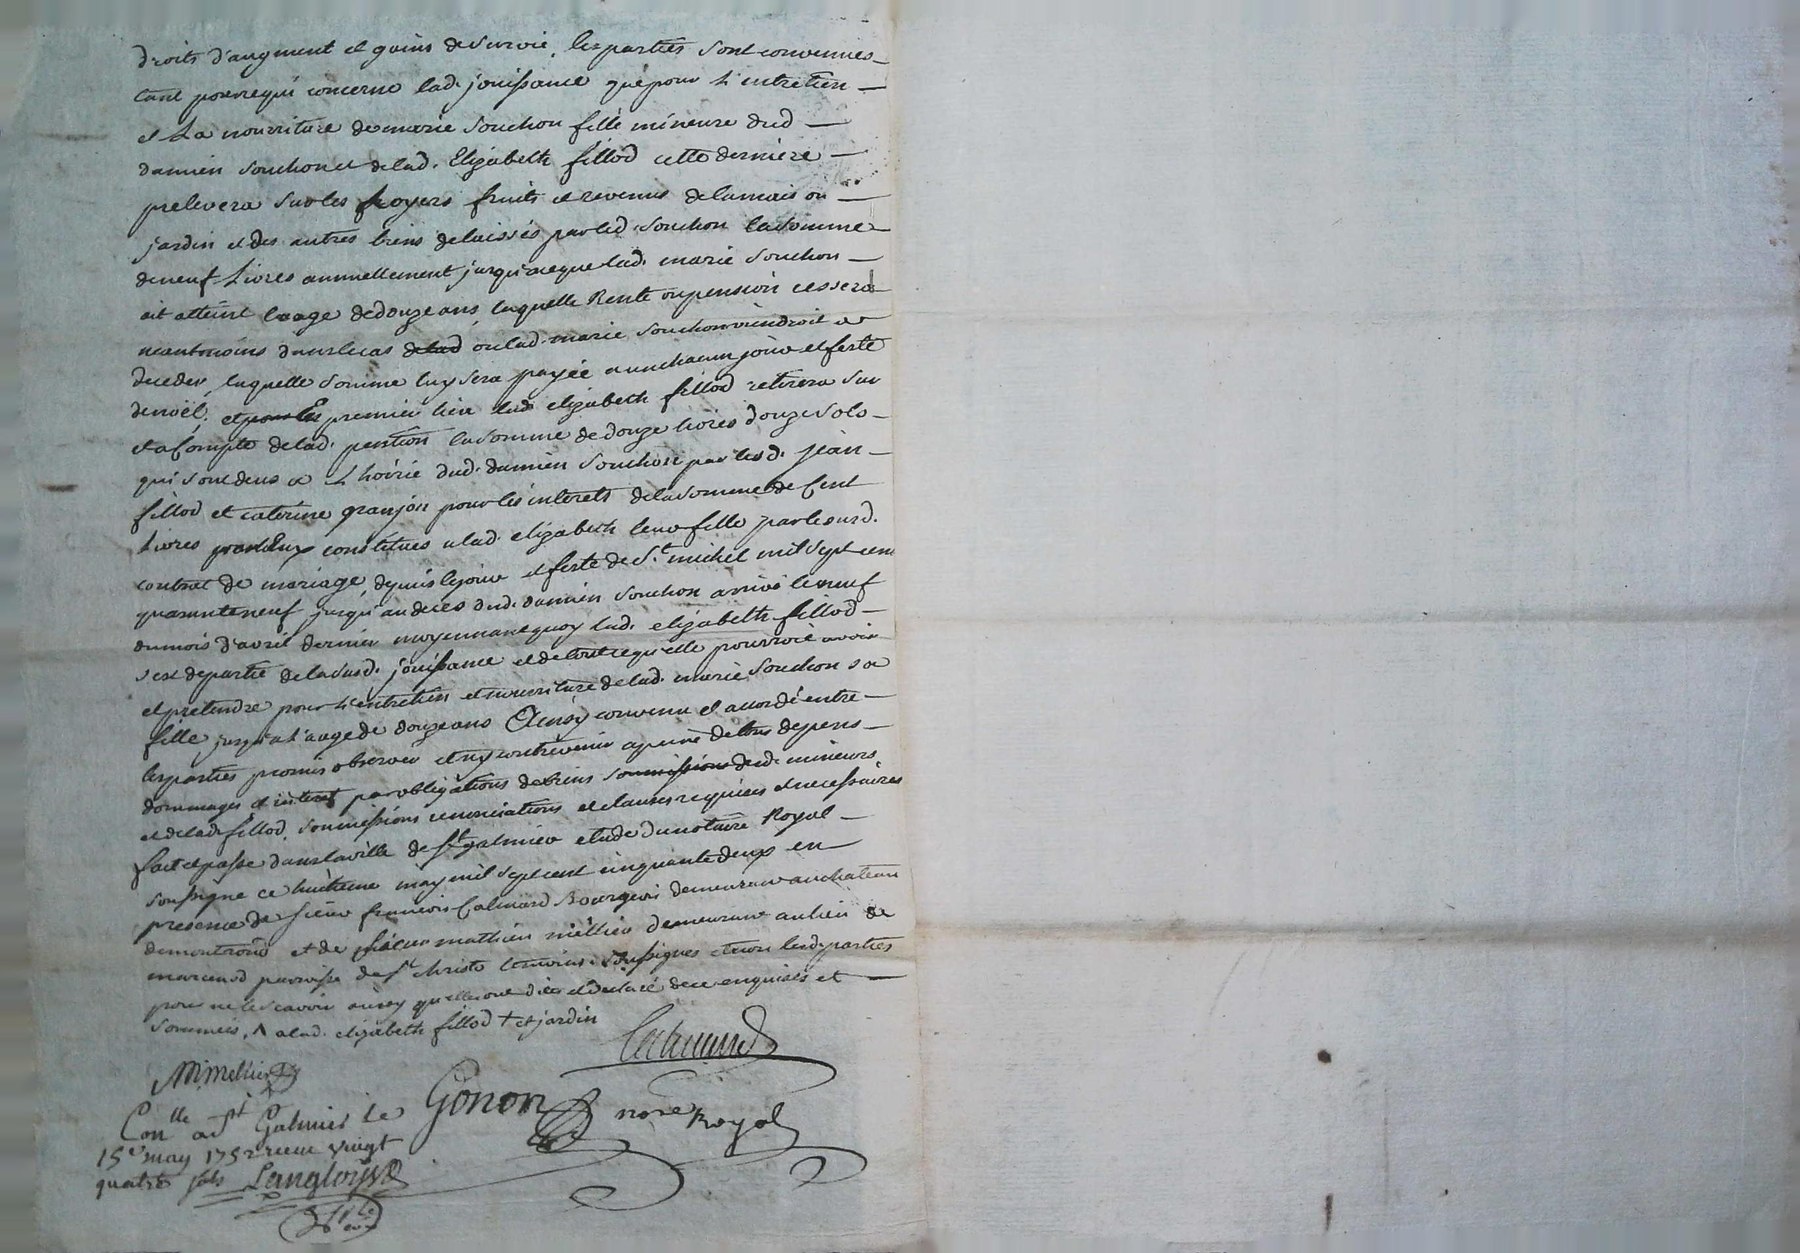 droits d'augment et gains de survie, les parties sont convenues
tant pour ce qui concerne lad. jouissance que pour l'entretien
et La nourriture de marie Souchon fille mineure dud
damien Souchon et de lad. Elizabeth fillod cette derniere
prelevera sur les froyers fruits et revenus de la maison
jardin et des autres biens delaissés par led. Souchon la somme
de neuf Livres annuellement jusqu'a ce que lad. marie Souchon
ait atteint l'aage de douze ans, laquelle Rente ou pension cessera
neantmoins dans le cas de lad ou lad. marie Souchon viendroit a
deceder, laquelle somme luy sera payée a un chacun jour et feste
de noël, et pour les premier lieu lad elizabeth fillod retirera sur
et a Compte de lad. pention la somme de douze livres douze sols
qui sont deus a L'hoirie dud. damien Souchon par lesd. jean
fillod et caterine granjon pour les interets de la somme de Cent
Livres par Eux constitués a lad. elizabeth leur fille par le susd.
contrat de mariage, depuis le jour et feste de St. michel mil sept cent
quarante neuf jusqu'au deces dud. damien Souchon arrivé le neuf
du mois d'avril dernier moyennant quoy lad. elizabeth fillod
s'est departie de la susd. jouissance et de tout ce qu'elle pourroit avoir
et pretendre pour l'entretien et nourriture de lad. marie Souchon sa
fille jusqu'a l'aage de douze ans Ainsy convenu et accordé entre
les parties promis observer et n'y contrevenir a peine de tous depens
dommages et interet par obligations de biens sommissions desd. mineurs
et de lad. fillod, sommissions renonciations et clauses requises et necessaires
fait et passé dans la ville de St galmier etude du notaire Royal
soussigné ce huitieme may mil sept cent cinquante deux en
presence de sieur francois Calmard Bourgeois demeurant au chateau
de montrond et de sieur mathieu mellier demeurant au lieu de
marcenod parroisse de St christo temoins soussignes et non lesd. parties
pour ne le scavoir ainsy qu'elles ont dit et declaré de ce enquises et
sommées, ^ a lad. elizabeth fillod + et jardin
Calmard
M. mellier
Gonon nore Royal
Conlle a St Galmier Le
15e may 1752 receu vingt
quatre sols Langlois